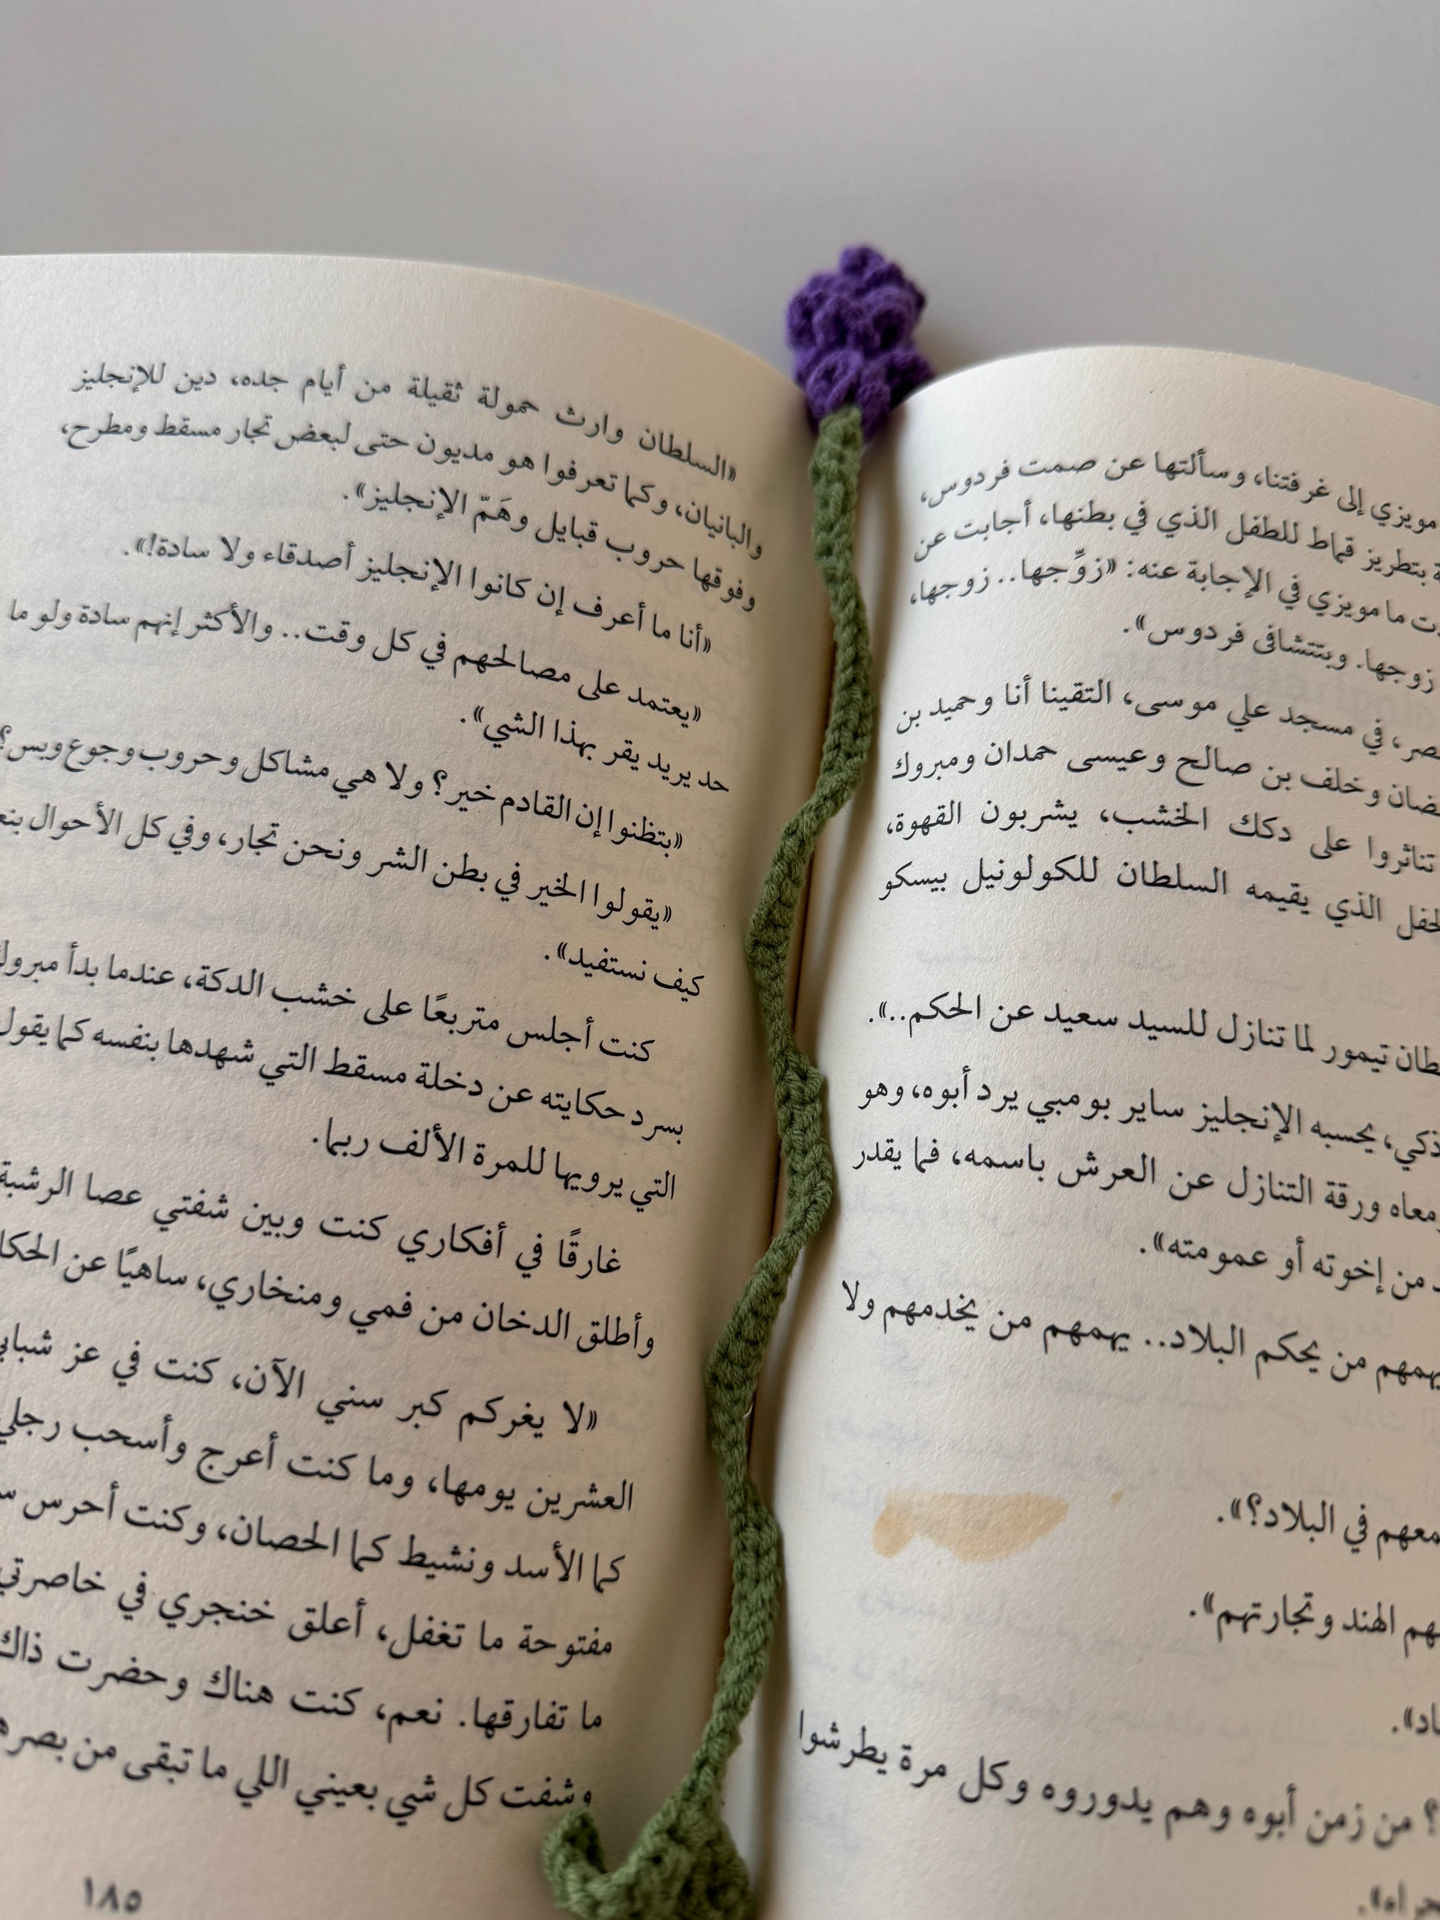 مويزي إلى غرفتنا، وسألتها عن صمت فردوس،
بتطريز قماط للطفل الذي في بطنها، أجابت عن
ما مويزي في الإجابة عنه: «زوِّجها.. زوجها،
زوجها. وبتتشافى فردوس».
في مسجد علي موسى، التقينا أنا وحميد بن
وخلف بن صالح وعيسى حمدان ومبروك
تناثروا على دكك الخشب، يشربون القهوة،
الذي يقيمه السلطان للكولونيل بيسكو
تيمور لما تنازل للسيد سعيد عن الحكم..».
ذكي، يحسبه الإنجليز ساير بومبي يرد أبوه، وهو
معاه ورقة التنازل عن العرش باسمه، فما يقدر
من إخوته أو عمومته».
من يحكم البلاد.. يهمهم من يخدمهم ولا
في البلاد؟».
الهند وتجارتهم».
؟ من زمن أبوه وهم يدوروه وكل مرة يطرشوا
«السلطان وارث حمولة ثقيلة من أيام جده، دين للإنجليز
والبانيان، وكما تعرفوا هو مديون حتى لبعض تجار مسقط ومطرح،
وفوقها حروب قبايل وهَمّ الإنجليز».
«أنا ما أعرف إن كانوا الإنجليز أصدقاء ولا سادة!».
«يعتمد على مصالحهم في كل وقت.. والأكثر إنهم سادة ولو ما
حد يريد يقر بهذا الشي».
«بتظنوا إن القادم خير؟ ولا هي مشاكل وحروب وجوع وبس؟
«يقولوا الخير في بطن الشر ونحن تجار، وفي كل الأحوال
كيف نستفيد».
كنت أجلس متربعًا على خشب الدكة، عندما بدأ مبروك
بسرد حكايته عن دخلة مسقط التي شهدها بنفسه كما يقول
التي يرويها للمرة الألف ربما.
غارقًا في أفكاري كنت وبين شفتي عصا الرشبة
وأطلق الدخان من فمي ومنخاري، ساهيًا عن
«لا يغركم كبر سني الآن، كنت في عز
العشرين يومها، وما كنت أعرج وأسحب رجلي
كما الأسد ونشيط كما الحصان، وكنت أحرس
مفتوحة ما تغفل، أعلق خنجري في خاصرتي
ما تفارقها. نعم، كنت هناك وحضرت ذاك
وشفت كل شي بعيني اللي ما تبقى من
١٨٥